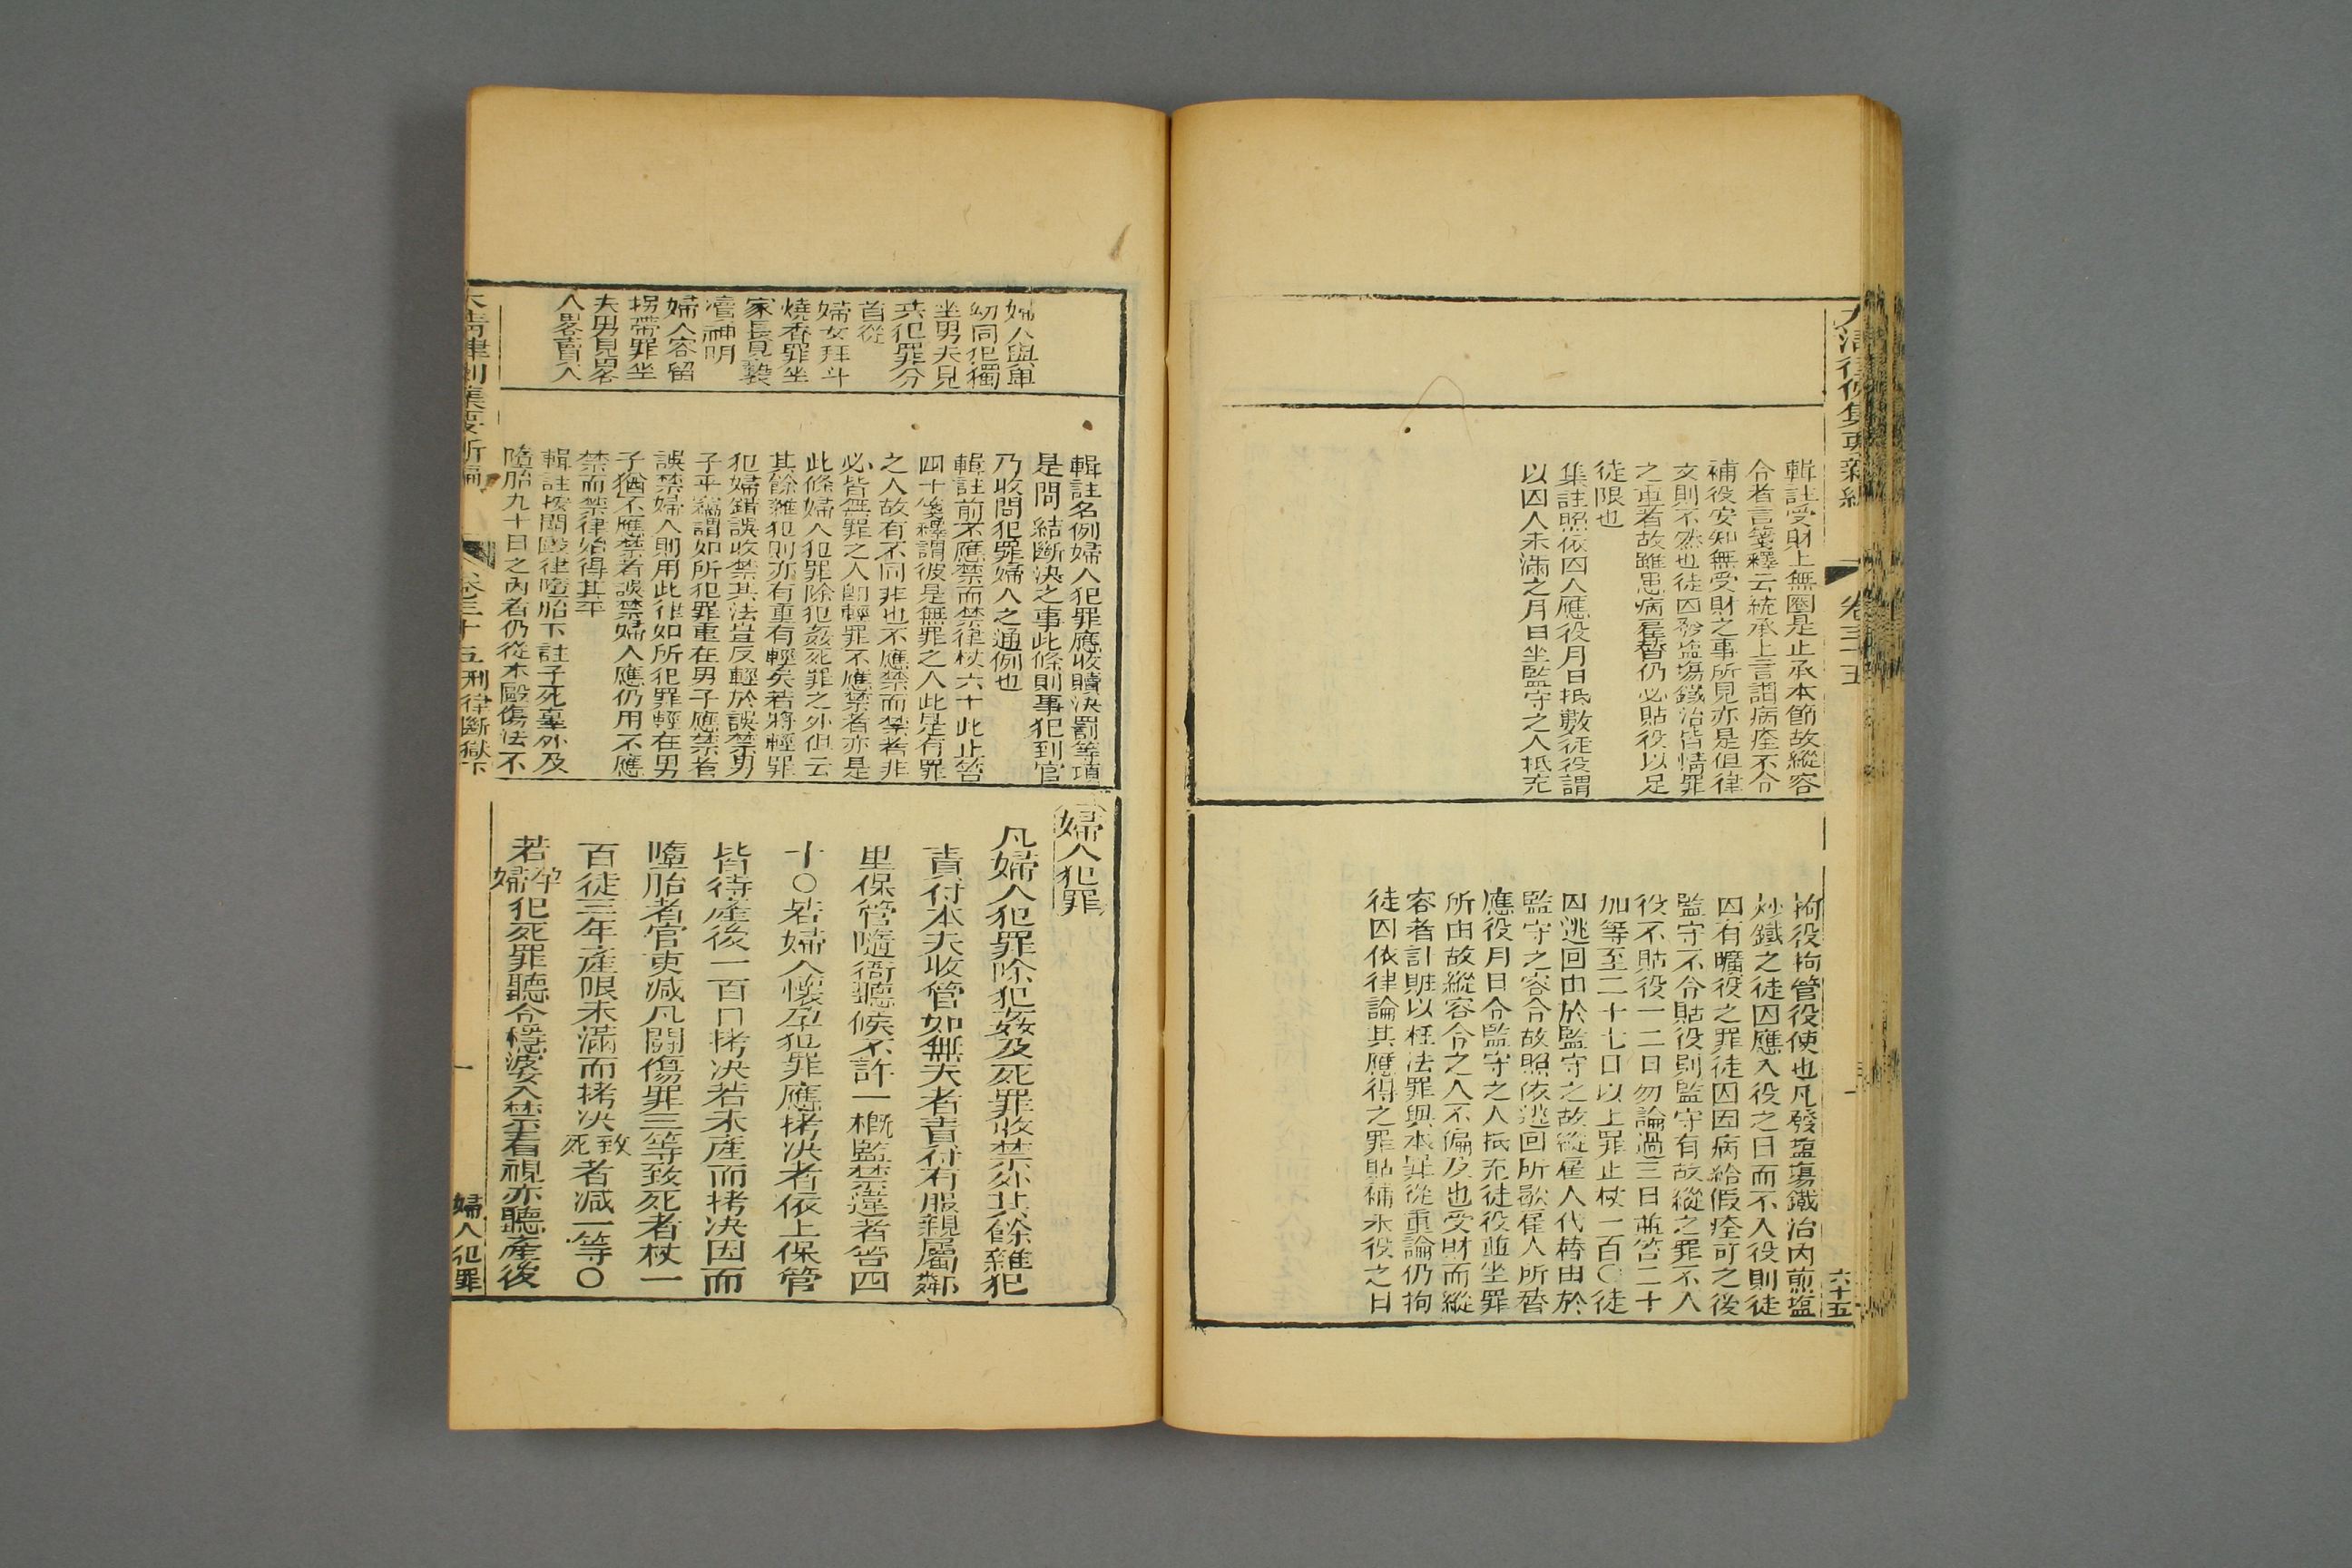 輯註受財上無圈是止承本節故縱容
令者言箋釋云統承上言謂病痊不令
補役安知無受財之事所見亦是但律
文則不然也徒囚發塩塲鐵冶皆情罪
之重者故雖患病雇替仍必貼役以足
徒限也
集註照依囚人應役月日抵數徒役謂
以囚人未滿之月日坐監守之人抵充
拘役拘管役使也凡發塩塲鐵冶內煎塩
炒鐵之徒囚應入役之日而不入役則徒
囚有曠役之罪徒囚因病給假痊可之後
監守不令貼役則監守有故縱之罪不入
役不貼役一二日勿論過三日並笞二十
加等至二十七日以上罪止杖一百〇徒
囚逃回由於監守之故縱雇人代替由於
監守之容令故照依逃回所歇雇人所替
應役月日令監守之人抵充徒役並坐罪
所由故縱容令之人不偏及也受財而縱
容者計贓以枉法罪與本罪從重論仍拘
徒囚依律論其應得之罪貼補未役之日
卷三十五
六十五
婦人與卑
幼同犯獨
坐男夫見
共犯罪分
首從
婦女拜斗
燒香罪坐
家長見褻
瀆神明
婦人容留
拐帶罪坐
夫男見畧
人畧賣人
輯註名例婦人犯罪應收贖決罰等項
是問結斷決之事此條則事犯到官
乃收問犯罪婦人之通例也
輯註前不應禁而禁律杖六十此止笞
四十箋釋謂彼是無罪之人此是有罪
之人故有不同非也不應禁而禁者非
必皆無罪之人卽輕罪不應禁者亦是
此條婦人犯罪除犯姦死罪之外但云
其餘雜犯則亦有重有輕矣若將輕罪
犯婦錯誤收禁其法豈反輕於誤禁男
子乎竊謂如所犯罪重在男子應禁者
誤禁婦人則用此律如所犯罪輕在男
子猶不應禁者誤禁婦人應仍用不應
禁而禁律始得其平
輯註按鬬毆律墮胎下註子死辜外及
墮胎九十日之內者仍從本毆傷法不
婦人犯罪
凡婦人犯罪除犯姦及死罪收禁外其餘雜犯
責付本夫收管如無夫者責付有服親屬鄰
里保管隨衙聽候不許一概監禁違者笞四
十〇若婦人懷孕犯罪應拷決者依上保管
皆待產後一百日拷決若未產而拷決因而
墮胎者官吏減凡鬭傷罪三等致死者杖一
百徒三年產限未滿而拷決致死者減一等〇
若孕婦犯死罪聽令穩婆入禁看視亦聽產後
大清律例集要新編
卷三十五刑律斷獄下
一
婦人犯罪